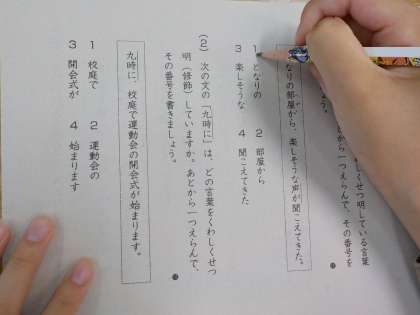 くわしくせつ明している言葉
あとから一つえらんで、その番号を
なりの部屋から、楽しそうな声が聞こえてきた。
1 となりの 2 部屋から
3 楽しそうな 4 聞こえてきた
(2) 次の文の「九時に」は、どの言葉をくわしくせつ
明(修飾)していますか。あとから一つえらんで、
その番号を書きましょう。
九時に、校庭で運動会の開会式が始まります。
1 校庭で 2 運動会の
3 開会式が 4 始まります